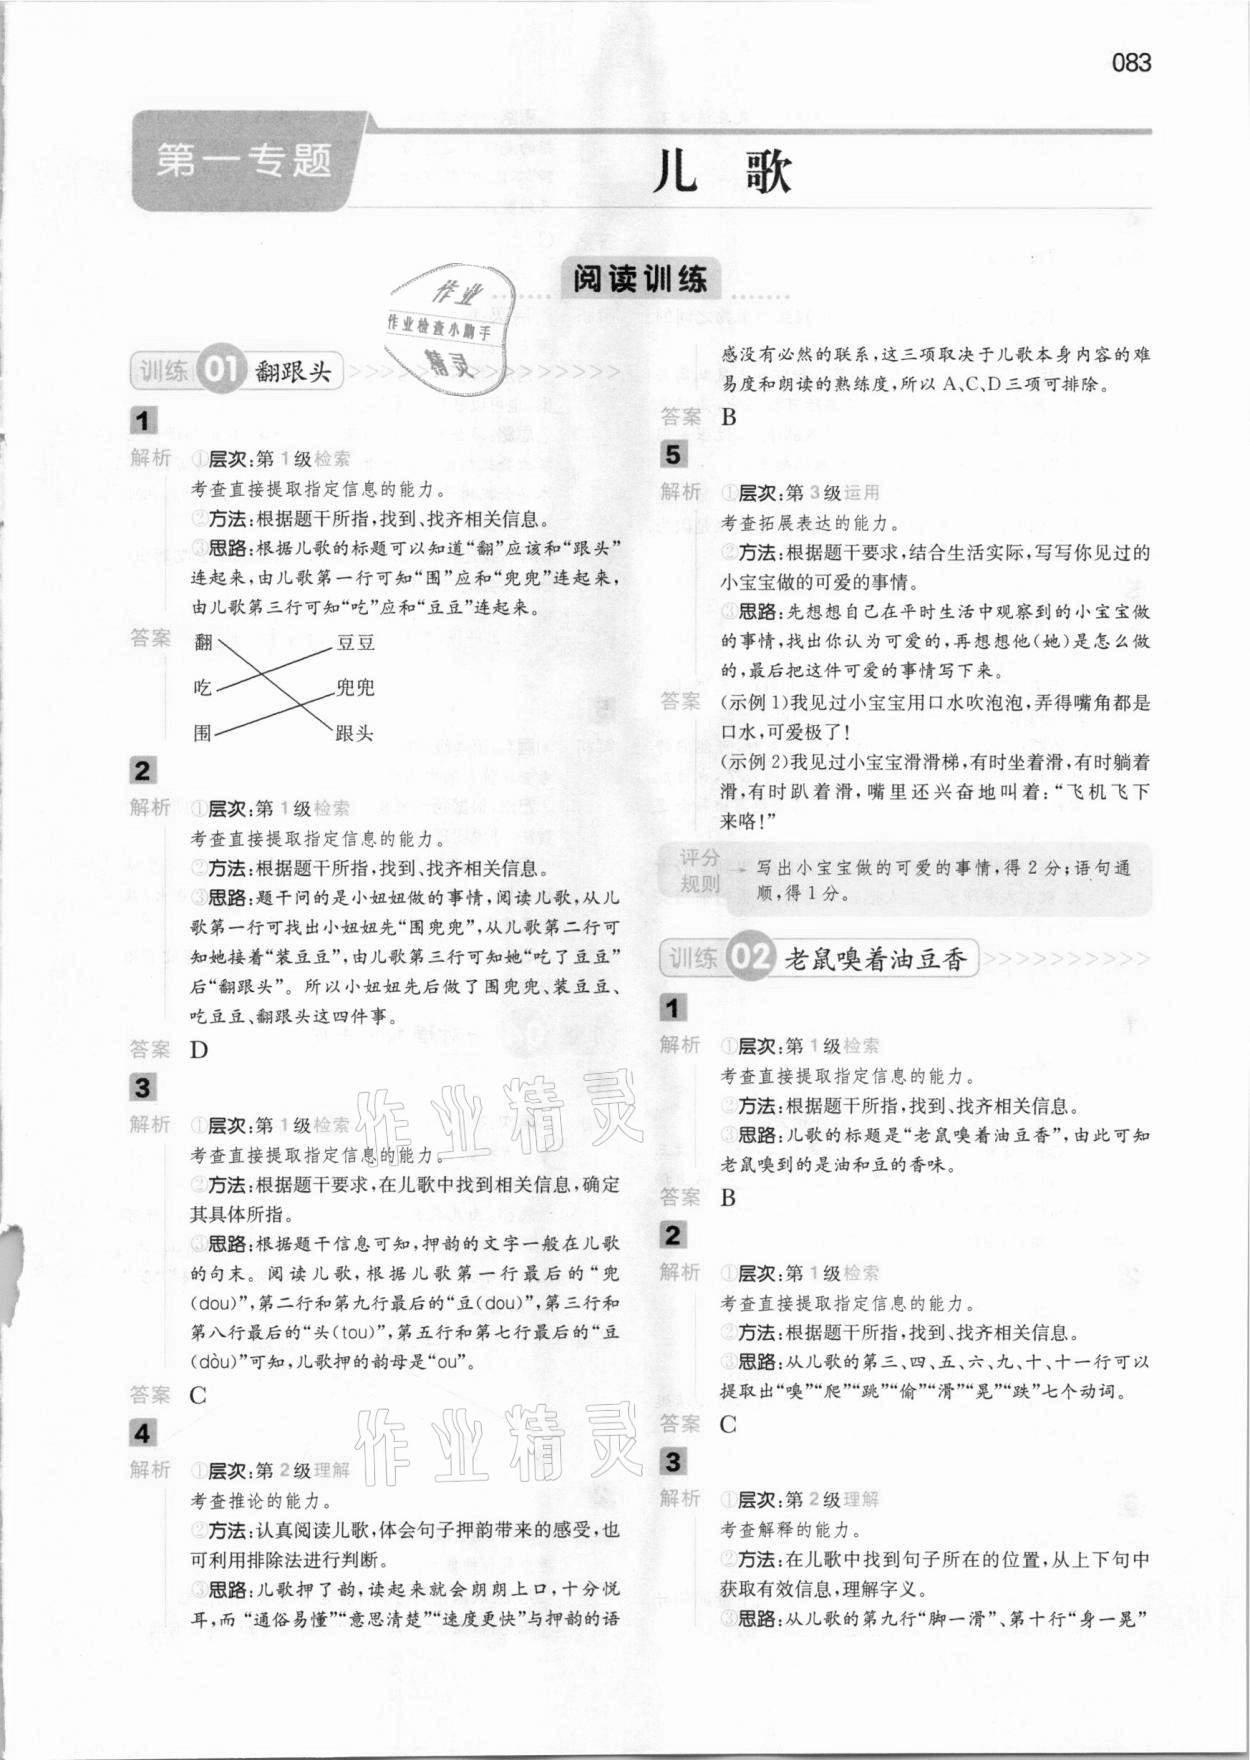 083
第一专题
儿 歌
阅读训练
作业
作业检查小助手
精灵
训练 01 翻跟头
1
解析 ①层次:第1级检索
考查直接提取指定信息的能力。
②方法:根据题干所指,找到、找齐相关信息。
③思路:根据儿歌的标题可以知道“翻”应该和“跟头”
连起来,由儿歌第一行可知“围”应和“兜兜”连起来,
由儿歌第三行可知“吃”应和“豆豆”连起来。
答案 翻 豆豆
吃 兜兜
围 跟头
2
解析 ①层次:第1级检索
考查直接提取指定信息的能力。
②方法:根据题干所指,找到、找齐相关信息。
③思路:题干问的是小妞妞做的事情,阅读儿歌,从儿
歌第一行可找出小妞妞先“围兜兜”,从儿歌第二行可
知她接着“装豆豆”,由儿歌第三行可知她“吃了豆豆”
后“翻跟头”。所以小妞妞先后做了围兜兜、装豆豆、
吃豆豆、翻跟头这四件事。
答案 D
3
解析 ①层次:第1级检索
考查直接提取指定信息的能力。
②方法:根据题干要求,在儿歌中找到相关信息,确定
其具体所指。
③思路:根据题干信息可知,押韵的文字一般在儿歌
的句末。阅读儿歌,根据儿歌第一行最后的“兜
(dou)”,第二行和第九行最后的“豆(dou)”,第三行和
第八行最后的“头(tou)”,第五行和第七行最后的“豆
(dòu)”可知,儿歌押的韵母是“ou”。
答案 C
4
解析 ①层次:第2级理解
考查推论的能力。
②方法:认真阅读儿歌,体会句子押韵带来的感受,也
可利用排除法进行判断。
③思路:儿歌押了韵,读起来就会朗朗上口,十分悦
耳,而“通俗易懂”“意思清楚”“速度更快”与押韵的语
感没有必然的联系,这三项取决于儿歌本身内容的难
易度和朗读的熟练度,所以A、C、D三项可排除。
答案 B
5
解析 ①层次:第3级运用
考查拓展表达的能力。
②方法:根据题干要求,结合生活实际,写写你见过的
小宝宝做的可爱的事情。
③思路:先想想自己在平时生活中观察到的小宝宝做
的事情,找出你认为可爱的,再想想他(她)是怎么做
的,最后把这件可爱的事情写下来。
答案 (示例1)我见过小宝宝用口水吹泡泡,弄得嘴角都是
口水,可爱极了!
(示例2)我见过小宝宝滑滑梯,有时坐着滑,有时躺着
滑,有时趴着滑,嘴里还兴奋地叫着:“飞机飞下
来咯!”
评分规则 写出小宝宝做的可爱的事情,得2分;语句通
顺,得1分。
训练 02 老鼠嗅着油豆香
1
解析 ①层次:第1级检索
考查直接提取指定信息的能力。
②方法:根据题干所指,找到、找齐相关信息。
③思路:儿歌的标题是“老鼠嗅着油豆香”,由此可知
老鼠嗅到的是油和豆的香味。
答案 B
2
解析 ①层次:第1级检索
考查直接提取指定信息的能力。
②方法:根据题干所指,找到、找齐相关信息。
③思路:从儿歌的第三、四、五、六、九、十、十一行可以
提取出“嗅”“爬”“跳”“偷”“滑”“晃”“跌”七个动词。
答案 C
3
解析 ①层次:第2级理解
考查解释的能力。
②方法:在儿歌中找到句子所在的位置,从上下句中
获取有效信息,理解字义。
③思路:从儿歌的第九行“脚一滑”、第十行“身一晃”
作业精灵
作业精灵